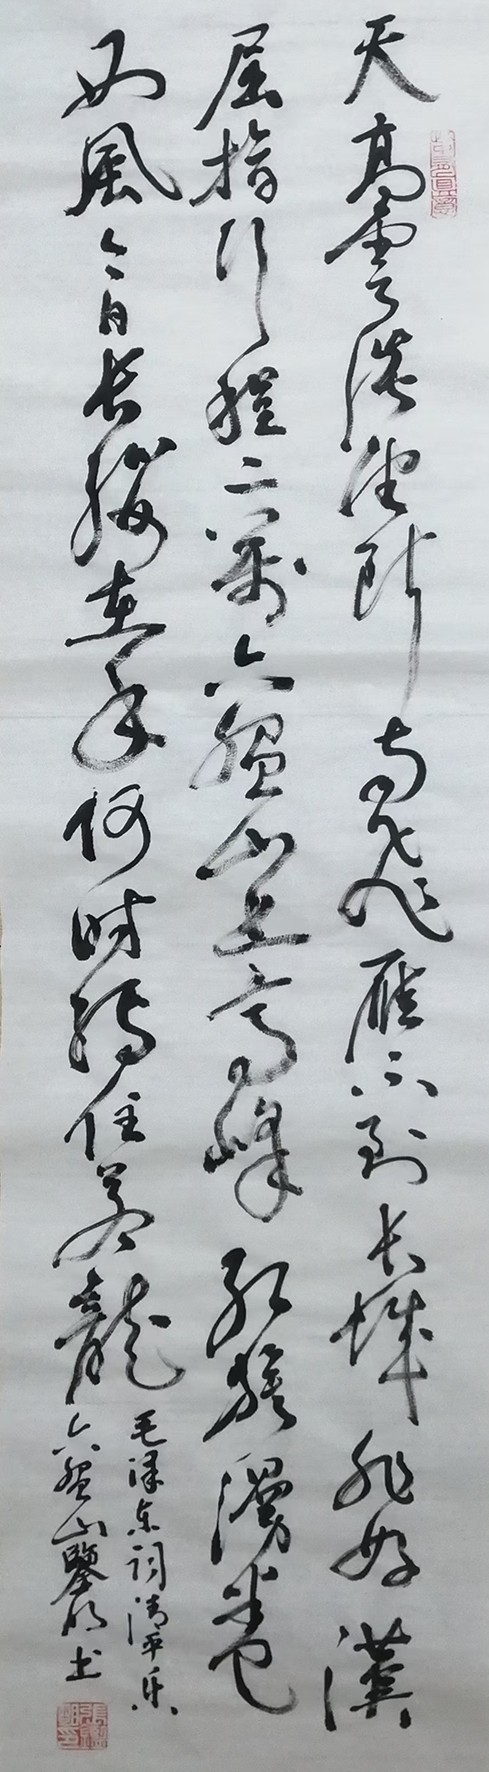 天高雲淡望斷南飛雁不到長城非好漢
屈指行程二萬六盤山上高峰紅旗漫卷
西風今日長纓在手何時縛住蒼龍
毛泽东词清平乐
六盤山鑒明书